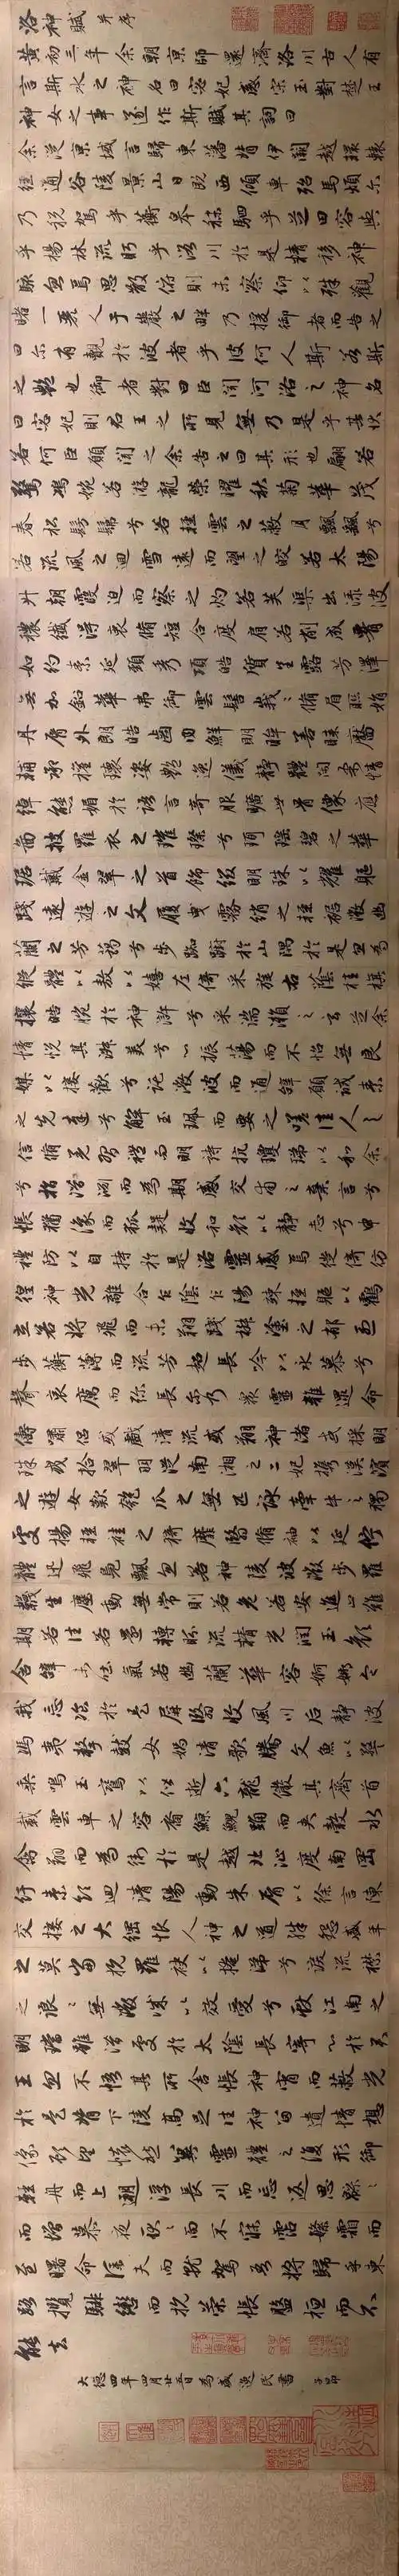 洛神賦 并序
黃初三年余朝京師還濟洛川古人有
言斯水之神名曰宓妃感宋玉對楚王
神女之事遂作斯賦其詞曰
余從京域言歸東藩背伊闕越轘轅
經通谷陵景山日既西傾車殆馬煩尔
乃稅駕乎蘅皋秣駟乎芝田容與
乎楊林流眄乎洛川於是精移神
駭忽焉思散俯則未察仰以殊觀
睹一麗人于巖之畔乃援御者而告之
曰尔有覿於彼者乎彼何人斯若斯
之艷也御者對曰臣聞河洛之神名
曰宓妃則君王之所見無乃是乎其狀
若何臣願聞之余告之曰其形也翩若
驚鴻婉若游龍榮曜秋菊華茂
春松髣髴兮若輕雲之蔽月飄飄兮
若流風之迴雪遠而望之皎若太陽
升朝霞迫而察之灼若芙蕖出淥波
襛纖得衷脩短合度肩若削成腰
如約素延頸秀項皓質呈露芳澤
無加鉛華弗御雲髻峩〻脩眉聯娟
丹脣外朗皓齒內鮮明眸善睞靨
輔承權瓌姿艷逸儀靜體閑柔情
綽態媚於語言奇服曠世骨像應
圖披羅衣之璀璨兮珥瑤碧之華
琚戴金翠之首飾綴明珠以耀軀
踐遠遊之文履曳霧綃之輕裾微幽
蘭之芳藹兮步踟躕於山隅於是忽焉
縱體以敖以嬉左倚采旄右蔭桂旗
攘皓腕於神滸兮采湍瀨之玄芝余
情悅其淑美兮心振蕩而不怡無良
媒以接歡兮託微波而通辭願誠素
之先達兮解玉珮而要之嗟佳人之
信脩羌習禮而明詩抗瓊珶以和余
兮指潛淵而為期感交甫之棄言兮
悵猶豫而狐疑收和顏以靜志兮申
禮防以自持於是洛靈感焉徙倚彷
徨神光離合乍陰乍陽竦輕軀以鶴
立若將飛而未翔踐椒塗之郁烈
步蘅薄而流芳超長吟以永慕兮
聲哀厲而弥長尔乃衆靈雜遝命
儔嘯侶或戲清流或翔神渚或採明
珠或拾翠羽從南湘之二妃攜漢濱
之遊女歎匏瓜之無匹詠牽牛之獨
處揚輕袿之猗靡翳脩袖以延佇
體迅飛鳧飄忽若神陵波微步羅
襪生塵動無常則若危若安進止難
期若往若還轉眄流精光潤玉顏
含辭未吐氣若幽蘭華容婀娜令
我忘飡於是屏翳收風川后靜波
馮夷擊鼓女媧清歌騰文魚以警
乘鳴玉鸞以偕逝六龍儼其齊首
載雲車之容裔鯨鯢踊而夾轂水
禽翔而為衛於是越北沚度南岡
紆素領迴清陽動朱脣以徐言陳
交接之大綱恨人神之道殊怨盛年
之莫當抗羅袂以掩涕兮淚流襟
之浪〻無微情以效愛兮獻江南之
明璫雖潛處於太陰長寄心於君
王忽不悟其所舍悵神宵而蔽光
於是背下陵高足往神留遺情想
像顧望懷愁冀靈體之復形御
輕舟而上遡浮長川而忘返思緜〻
而增慕夜耿〻而不寐霑繁霜而
至曙命僕夫而就駕吾將歸乎東
路攬騑轡而抗策悵盤桓而不
能去
大德四年四月廿五日為盛逸民書 子昂